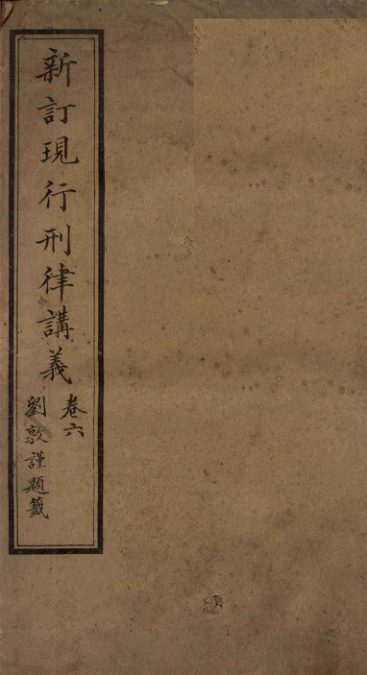 新訂現行刑律講義
卷六
劉敦謹題籤